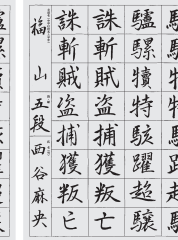 驢騾犢特駭躍超驤
誅斬賊盗捕獲叛亡
誅斬賊盗捕獲叛亡
福山 五段 西谷麻央